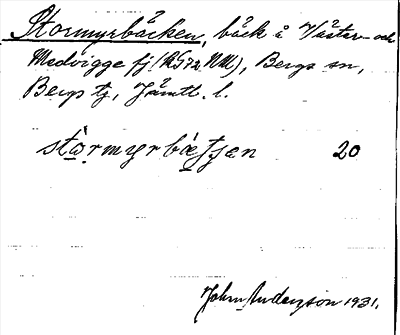 Stormyrbäcken, bäck å Väster- och
Medvigge fj (RG72 NM), Bergs sn,
Bergs tg, Jämtl. l.
stòrmyrbætjen 20
John Anderzson 1931.